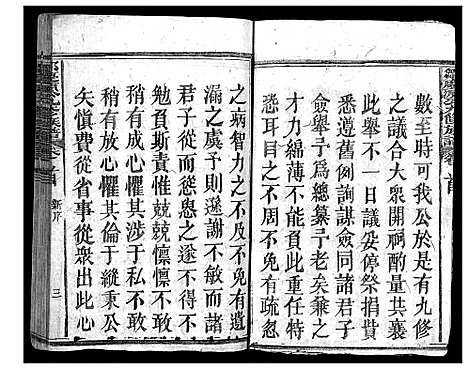 數至時可我公於是有九修
之議合大衆開祠酌量共襄
此舉不一日議妥停祭捐貲
悉遵舊例詢謀僉同諸君子
僉舉予爲總纂予老矣兼之
才力綿薄不免有
恐耳目之不周不免有
之病智力之不及不免有遺
漏之虞予則遜謝不敏而諸
君子從而慫恿之遂不得不
勉負斯責惟兢兢懍懍不敢
稍有成心懼其涉于私不敢
稍有放心懼其倫于縱秉公
矢慎費從省事從衆出此心
新序
三